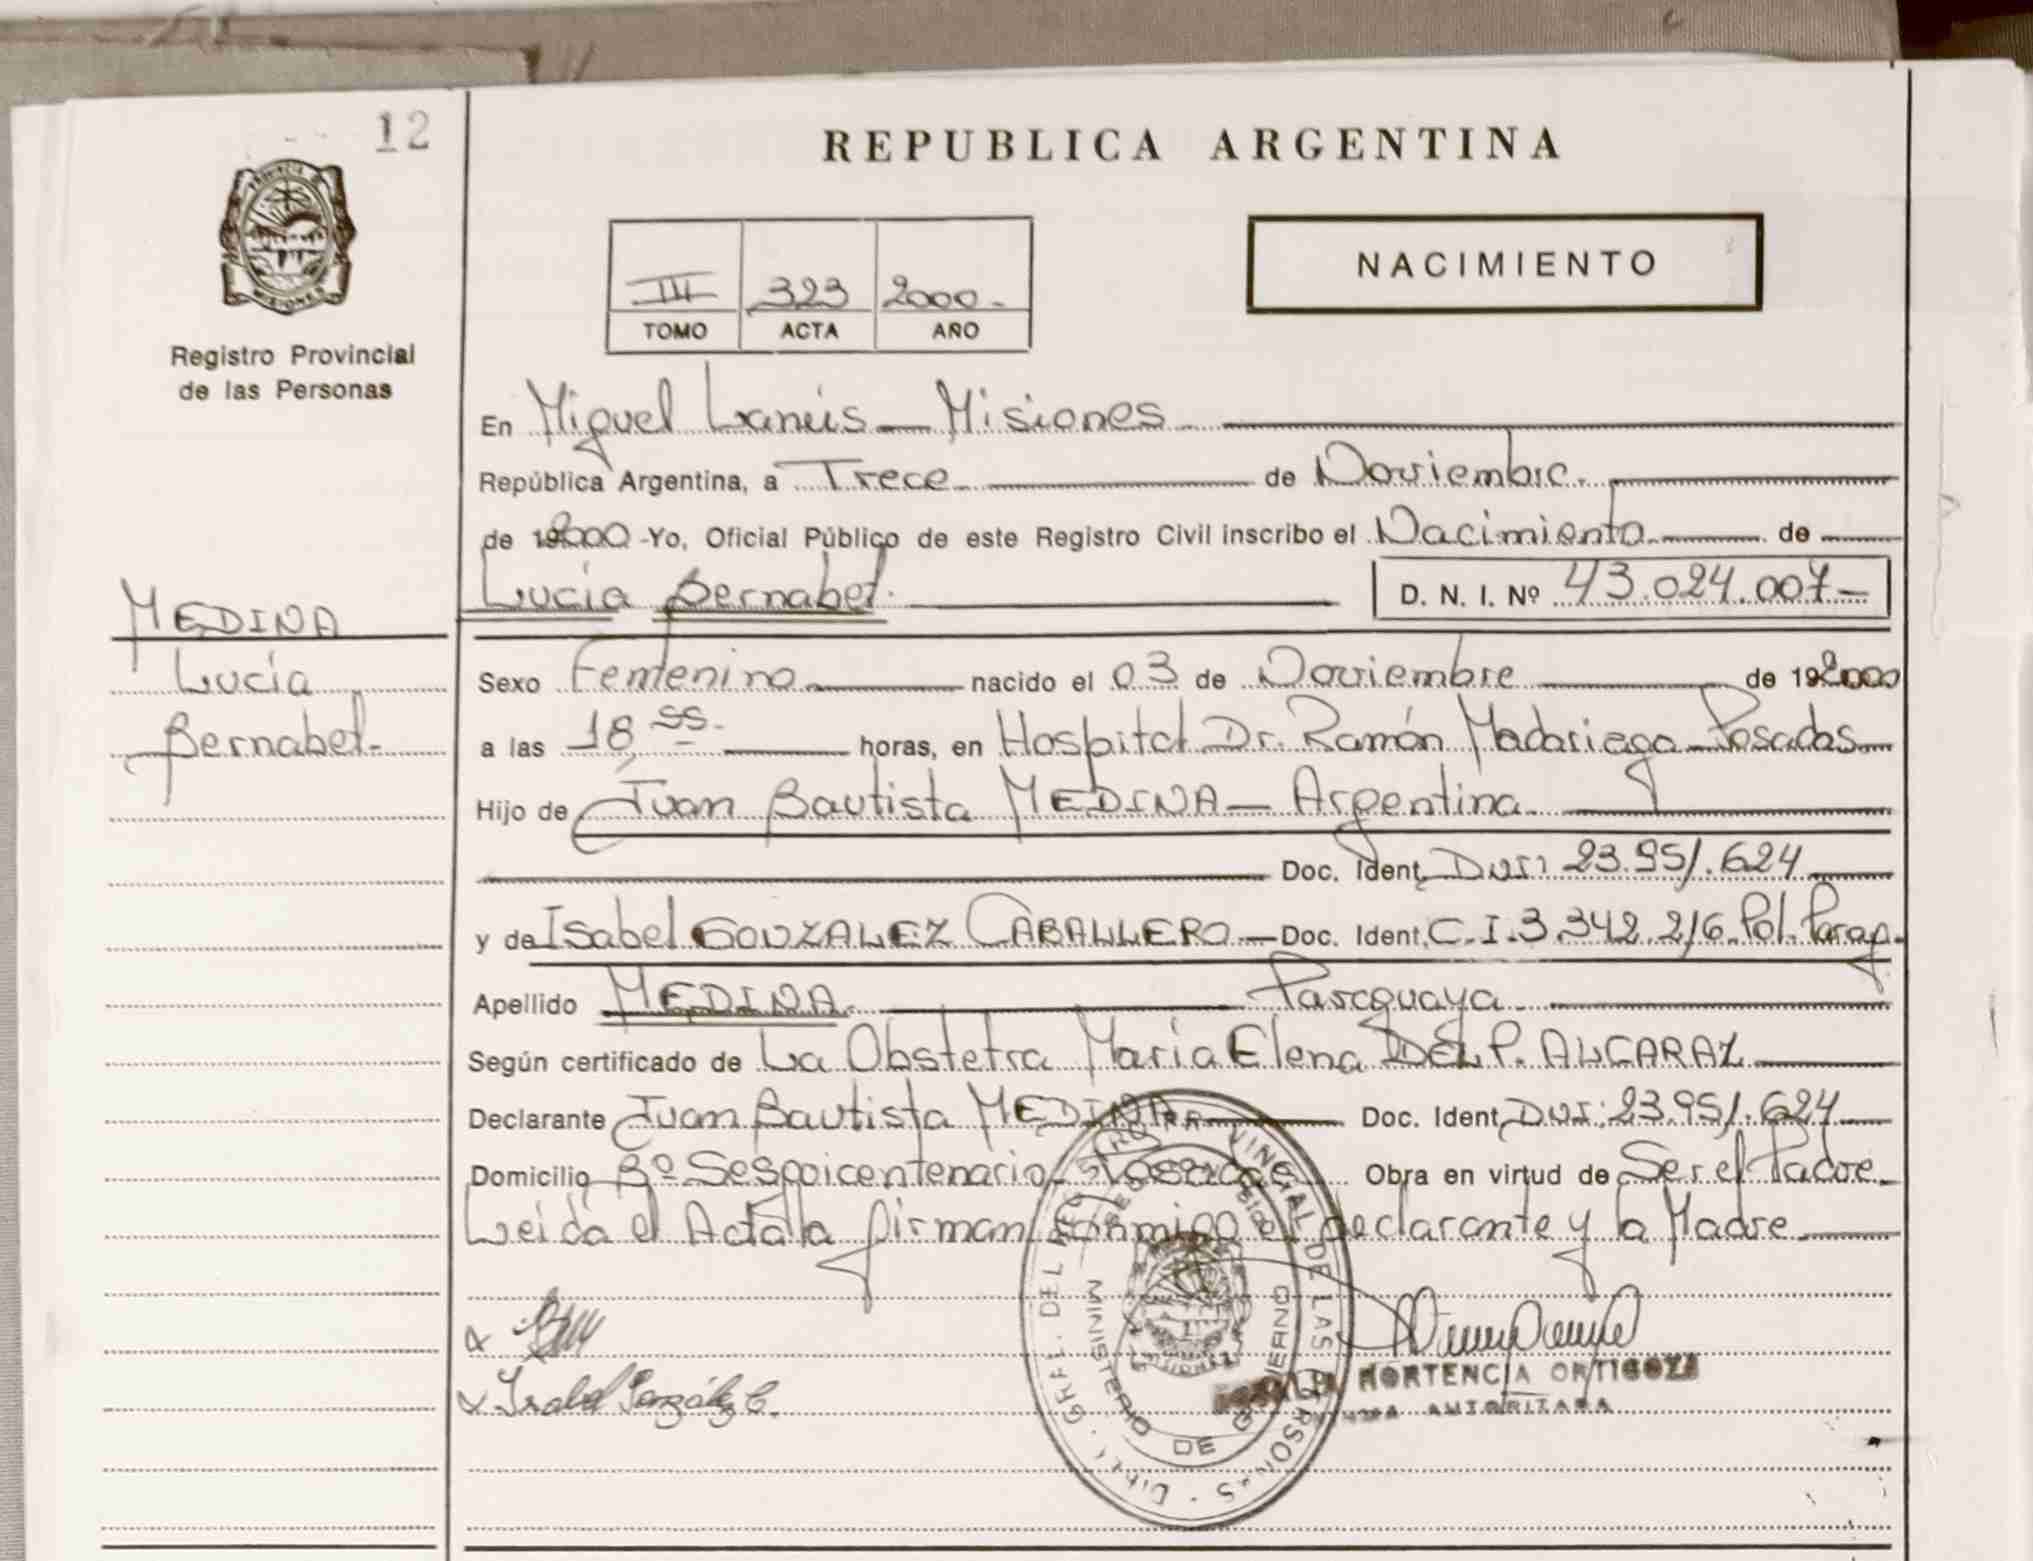 12
REPUBLICA ARGENTINA
NACIMIENTO
III 323 2000
TOMO ACTA AÑO
Registro Provincial
de las Personas
En Miguel Lanús Misiones
República Argentina, a Trece de Noviembre
de 2000 Yo, Oficial Público de este Registro Civil inscribo el Nacimiento de
Lucía Bernabet. D. N. I. Nº 43.024.007
MEDINA
Lucía
Bernabet
Sexo Femenino nacido el 03 de Noviembre de 2000
a las 18 55 horas, en Hospital Dr. Ramón Madariaga Posadas
Hijo de Juan Bautista MEDINA Argentina
Doc. Ident. DNI: 23.951.624
y de Isabel GONZALEZ CABALLERO Doc. Ident. C.I. 3.342.216 Pol. Parag.
Apellido MEDINA Paraguaya
Según certificado de La Obstetra María Elena DEL P. ALCARAZ
Declarante Juan Bautista MEDINA Doc. Ident. DNI: 23.951.624
Domicilio Bº Sesquicentenario Posadas Obra en virtud de Ser el Padre
Leída el Acta la firman conmigo el declarante y la Madre
Isabel González C.
HORTENCIA ORTIGOZA
AUTORIZADA
MINISTERIO DE GOBIERNO